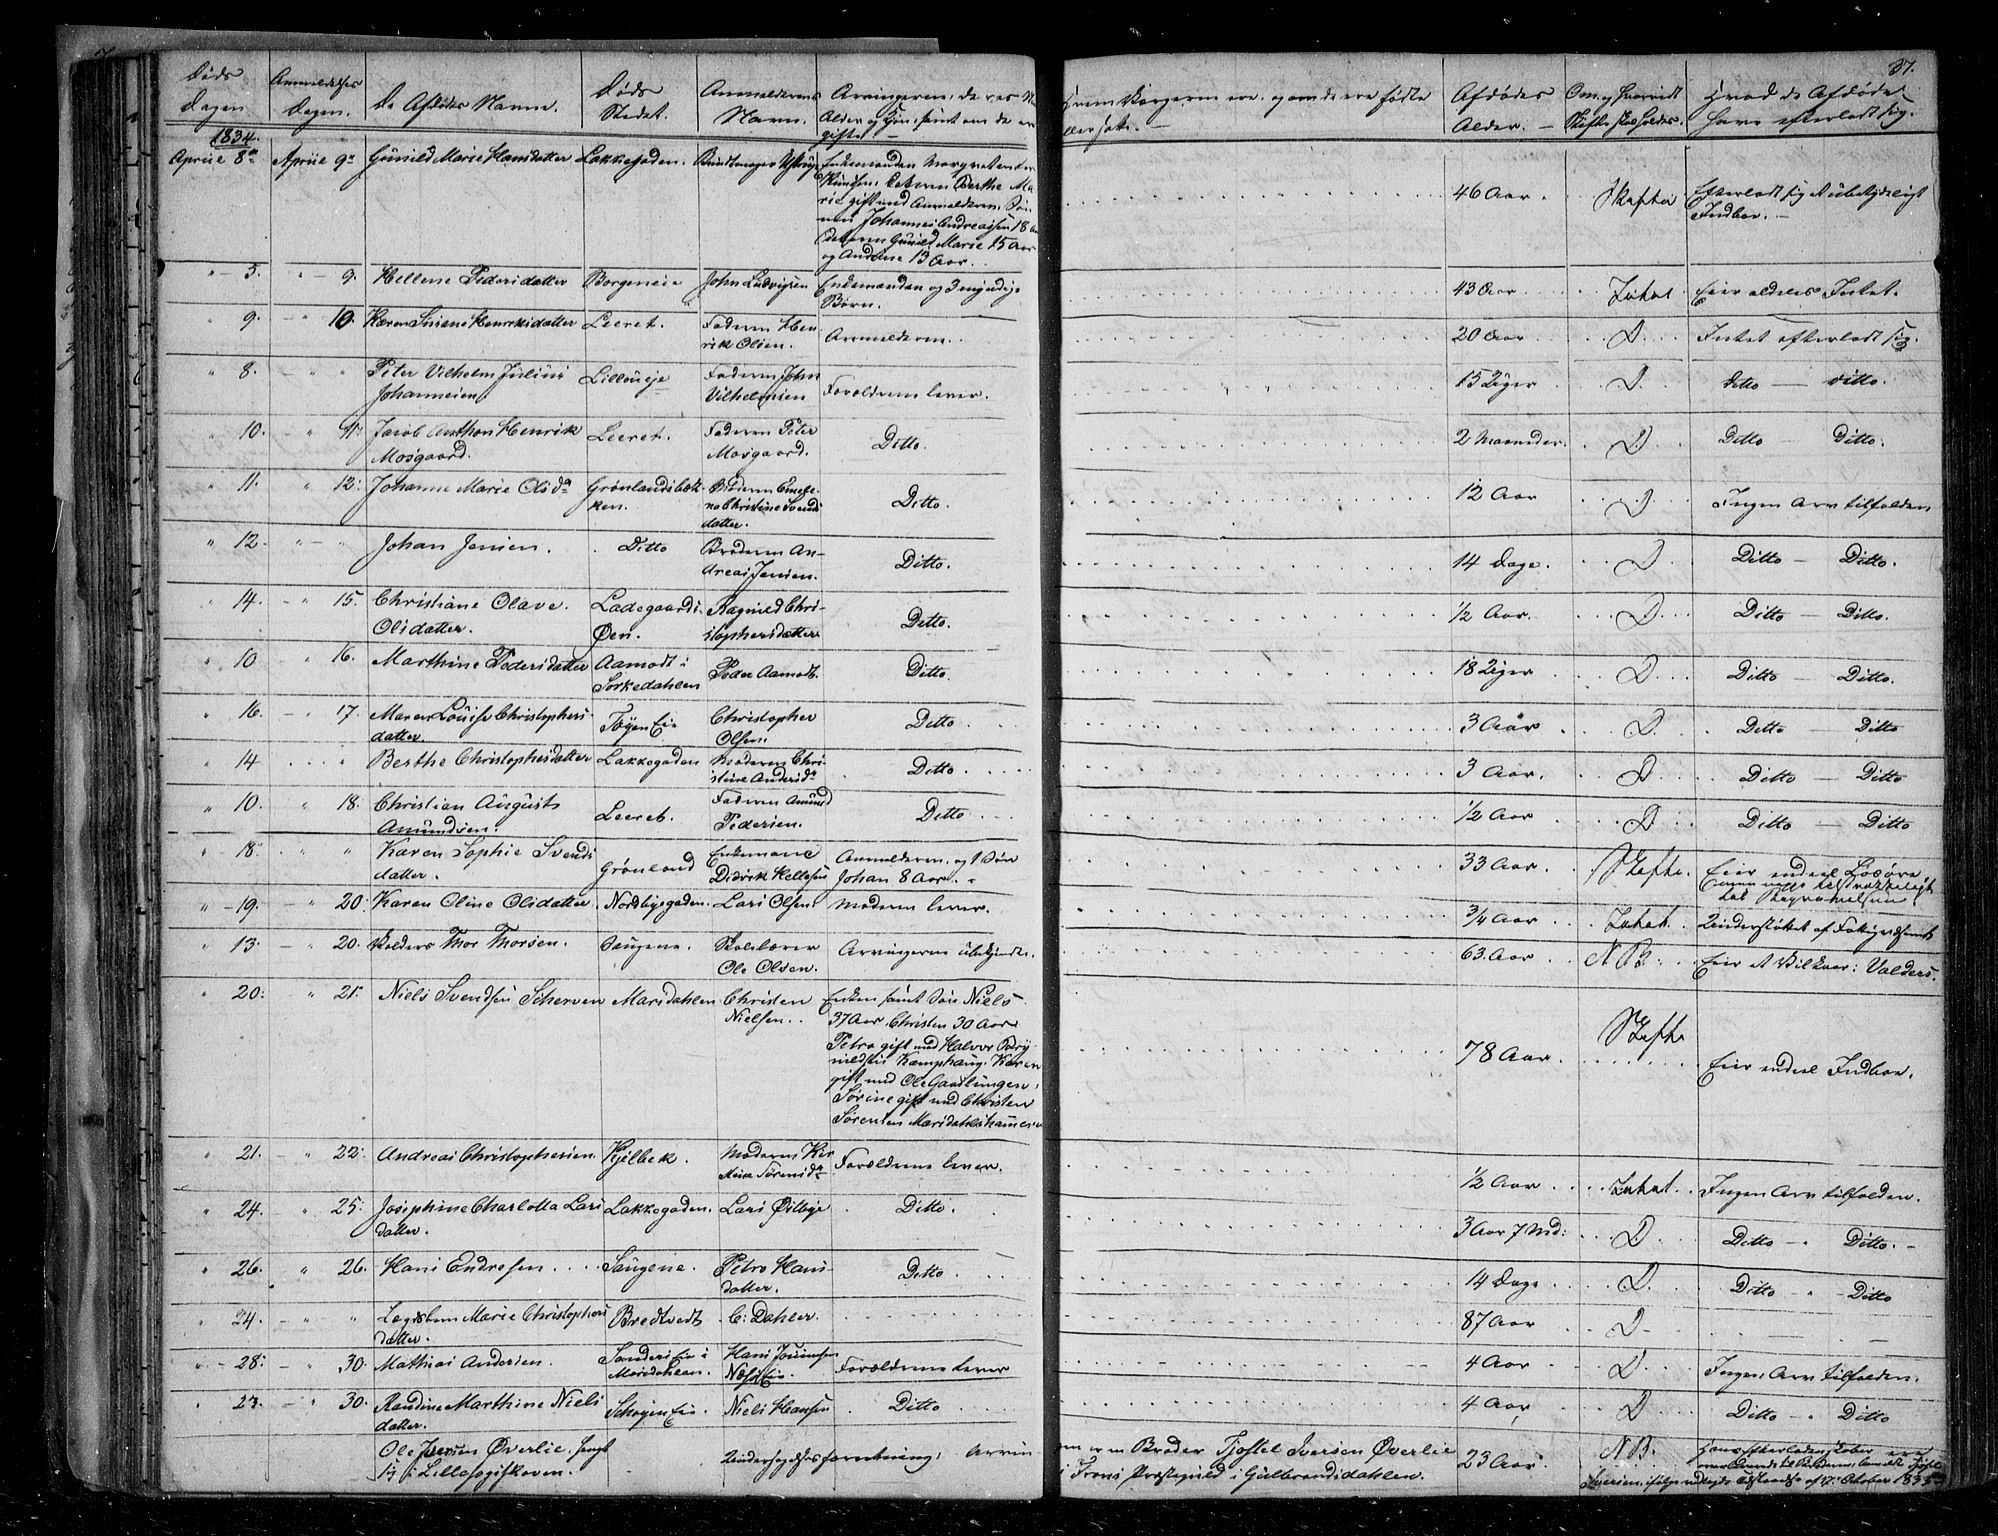 37.
Døds Dagen
Anmeldelses Dagen.
De Afdødes Navne.
Døds Stedet.
Anmelderens Navn.
Arvingerne, deres Alder og samt om de ere gifte.
ere, og om de ere fødte
Afdødes Alder.
Om og hvorvidt Skifte holdes.
Hvad de Afdøde have efterladt sig.
1834
Aprile 8de Aprile 9de Gunild Marie Hansdatter Lakkegaden. Buntmager Enkemanden Margrethe
Datteren Berthe Ma-
rie gift med Anmelderen. Søn-
nen Johannes Andreassen 18
Datteren Gunild Marie 15 Aar
og Andrine 13 Aar. 46 Aar. Skifte Efterladt sig et ubetydeligt
Indboe.
" 5. " 9. Hellene Pedersdatter Borgeneie John Ludvigsen Enkemanden og 3 myndige
Børn. 43 Aar Intet Eier aldeles Intet.
9 10. Karen Susane Henriksdatter Leeret. Faderen Hen-
rik Olsen. Anmelderen. 20 Aar D. Intet efterladt sig.
" 8. " " Peter Vilhelm Julius
Johannesen Lilloueje Faderen John
Vilhelmsen Forældrene lever. 15 Uger D. Ditto — Ditto.
" 10. " 11. Jacob Anthon Henrik
Mosgaard. Leeret. Faderen Peter
Mosgaard. Ditto. 2 Maaneder. D. Ditto — Ditto.
" 11. " 12. Johanne Marie Olsda Grønlandsbek-
ken. Moderen
Christine Svends
datter. Ditto. 12 Aar D. Ingen Arv tilfalden
" 12. " " Johan Jensen. Ditto Broderen An-
dreas Jensen. Ditto. 14 Dage. D. Ditto — Ditto.
" 14. " 15. Christiane Olave
Olsdatter. Ladegaards
Øen. Ragnild Chri-
stophersdatter Ditto. 1/2 Aar. D. Ditto — Ditto.
" 10 " 16. Marthine Pedersdatter Aamodt i
Sørkedahlen Peder Aamodt. Ditto. 18 Uger D. Ditto — Ditto.
" 16. " 17. Maren Louise Christophers
datter. Tøyen Eie Christopher
Olsen. Ditto 3 Aar D. Ditto — Ditto
" 14 " Berthe Christophersdatter Lakkegaden Moderen Chri-
stine Andersda Ditto. 3 Aar. D. Ditto — Ditto
" 10. " 18. Christian August
Amundsen. Leeret. Faderen Amund
Pedersen. Ditto. 1/2 Aar D. Ditto — Ditto
" 18. " " Karen Sophie Svends
datter. Grønland Enkemand
Didrik Kellesen Anmelderen og 1 Søn
Johan 8 Aar. 33 Aar Skifte. Eier endeel Løsøre,
" 19. " 20. Karen Oline Olsdatter. Nordbyegaden. Lars Olsen. Moderen lever. 3/4 Aar Intet. Understøttet af Fattigvæsenet
" 13. " 20. Thor Thorsen. Saugene. Skolelærer
Ole Olsen. Arvingerne ubekjendte. 63 Aar NB. Eier et Vilkaar i Valders.
" 20. " 21. Niels Svendsen Scherven Maridahlen Christen
Nielsen. Enken samt Søn Niels
37 Aar. Christen 30 Aar
Petra gift med Halvor
Kamphaug. Karen
gift med Ole
Sørine gift med Christen
Sørensen Maridahlshammeren 78 Aar. Skifte Eier endeel Indboe.
" 21. " 22. Andreas Christophersen. Kjelbek. Moderen
Sørensda Forældrene lever. 1/2 Aar Intet. Ingen Arv tilfalden.
" 24. " 25. Josephine Charlotta Lars
datter. Lakkegaden. Lars Østbye Ditto. 3 Aar 7 Md. D. Ditto " Ditto.
" 26. " 26. Hans Endresen Saugene. Petra Hans
datter. Ditto. 14 Dage D. Ditto " Ditto
" 24. " " Marie Christophers
datter. Bredtvedt C. Dahler. 87 Aar D.
" 28. " 30. Mathias Andersen. Sanders Eie i
Maridahlen. Hans
Eie. Forældrene lever 4 Aar D. Ingen Arv tilfalden.
" 23. " 30. Randine Marthine Niels
datter. Schøyen Eie. Niels Hansen Ditto 4 Aar D. Ditto " Ditto
Ole Iversen Øverlie,
i Lillefogtskoven. Undersøgelsesforretning. Arvin
en Broder Tjøstel Iversen Øverlie
i Frons Præstegield i Gulbrandsdahlen. 23 Aar NB.
October 1835